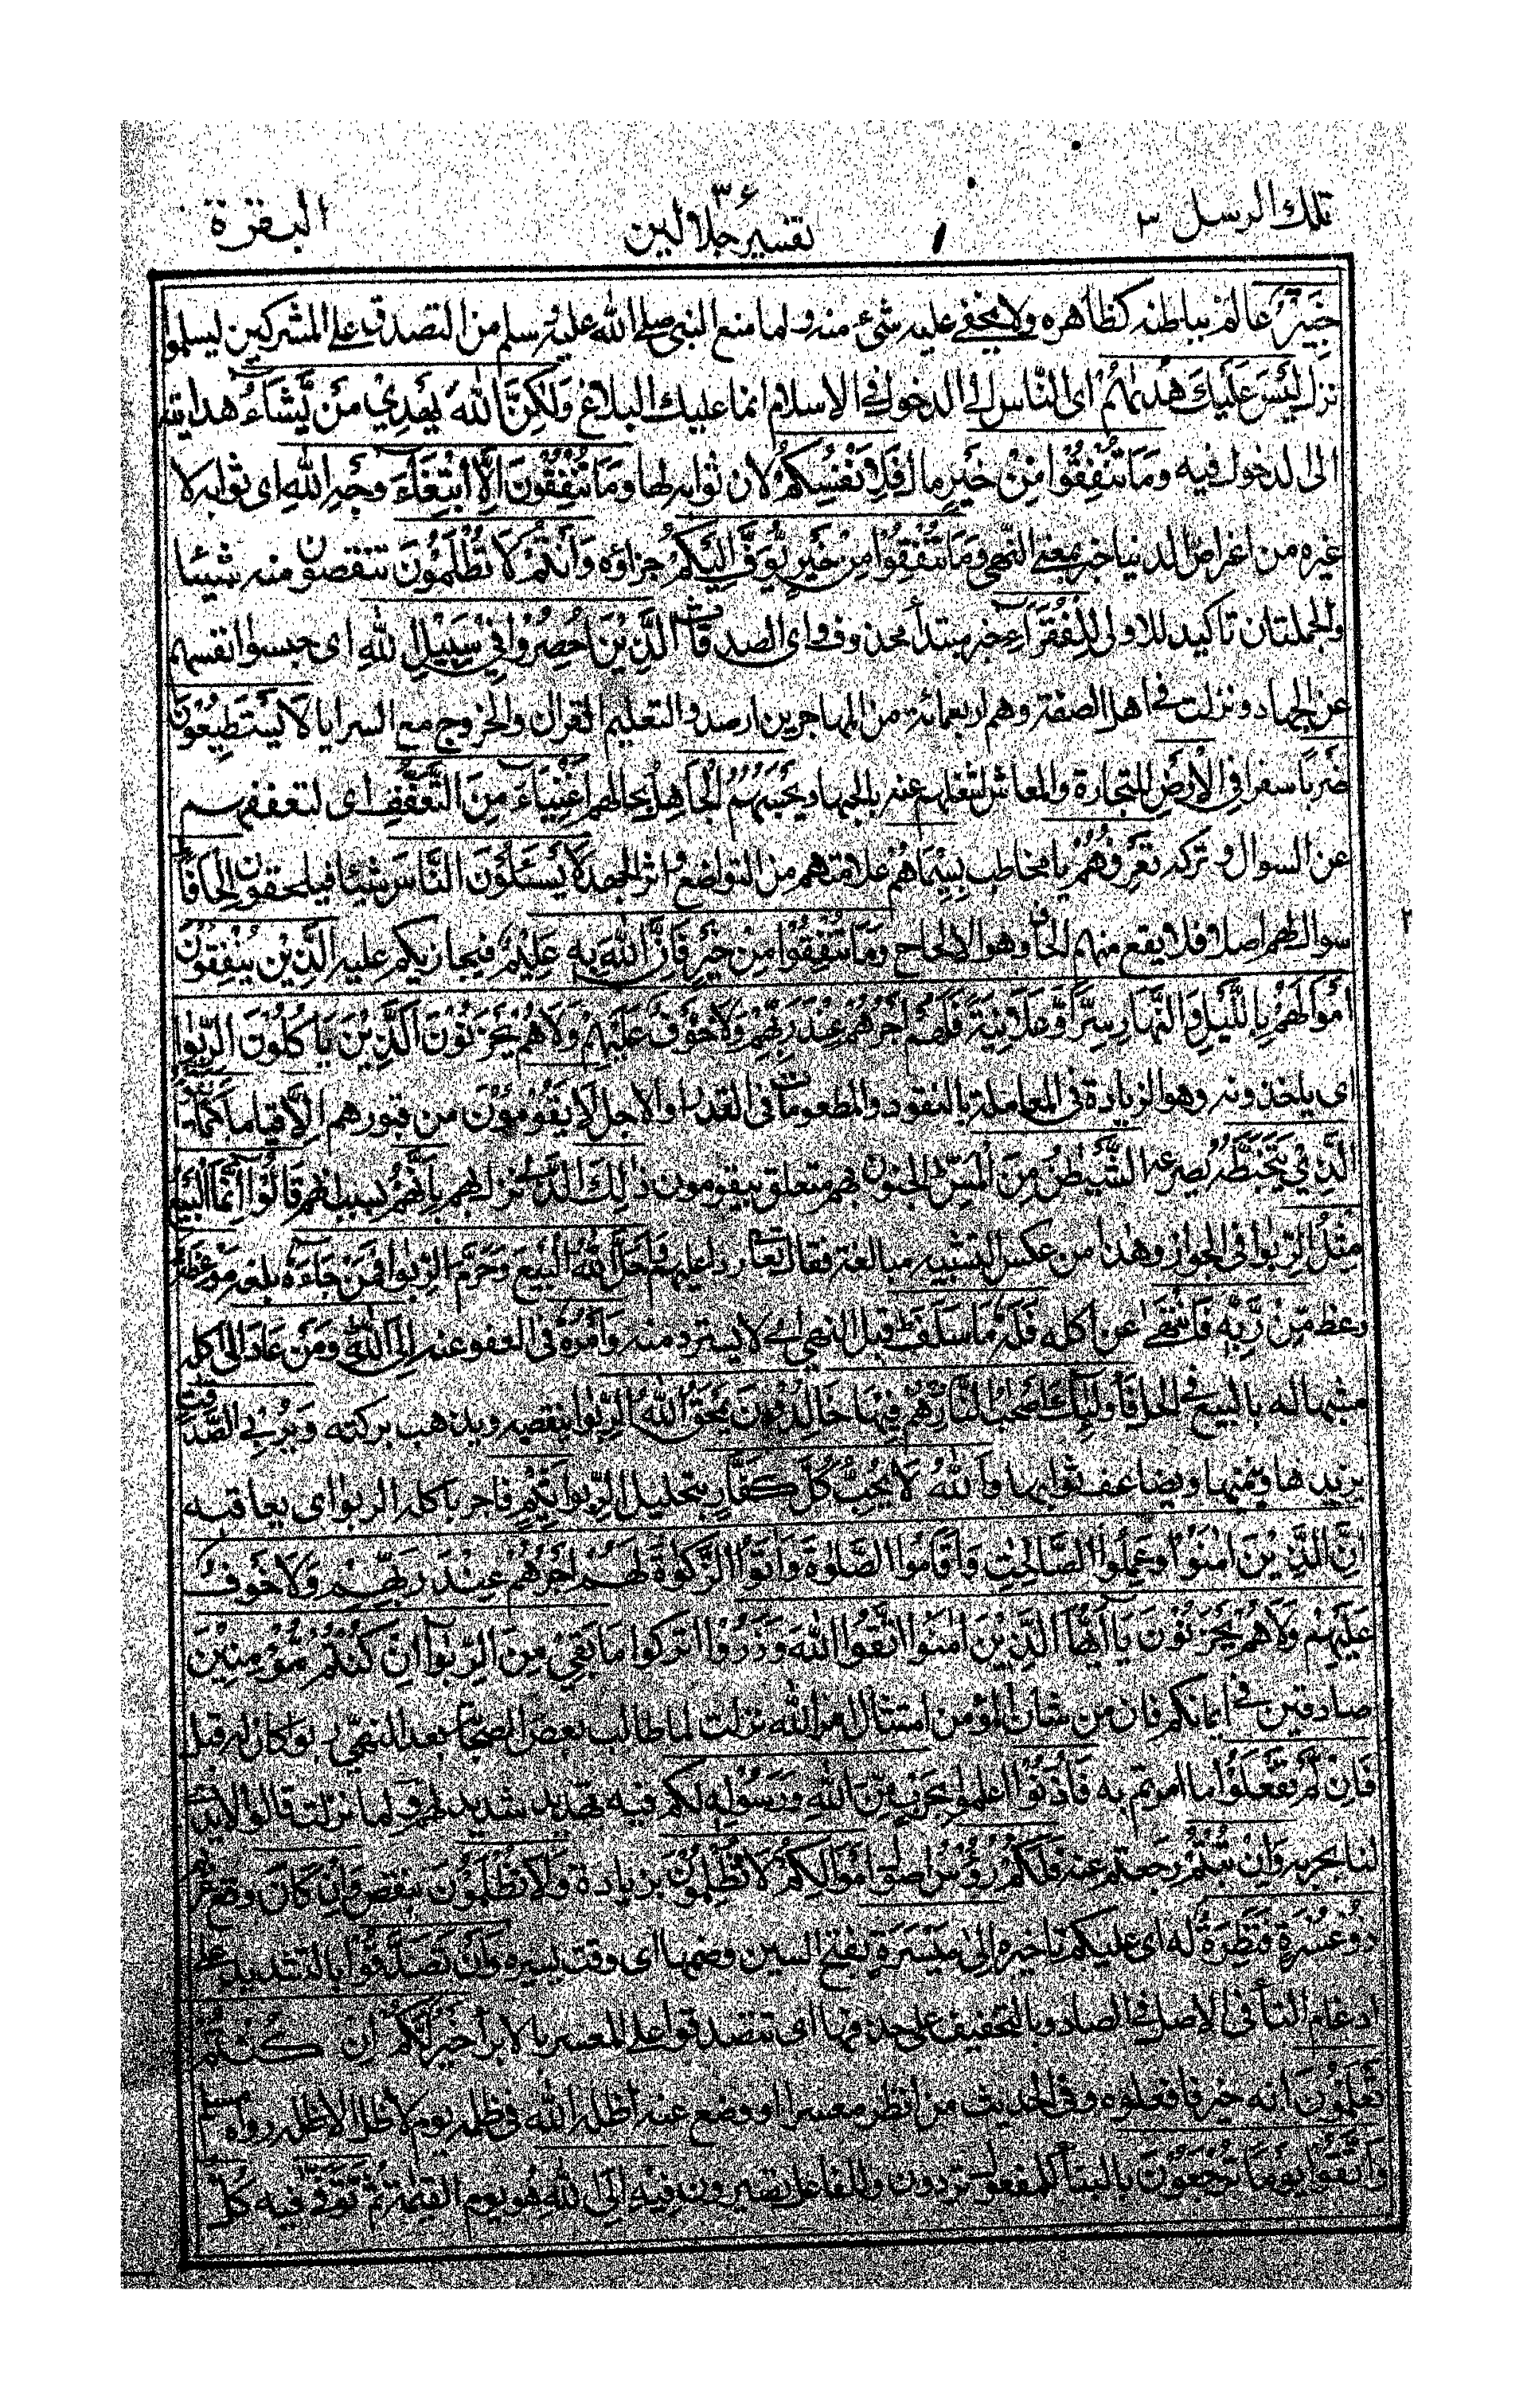 تلك الرسل ٣
٣٤
تفسير جلالين
البقرة
خَبِيْرٌ عالم بباطنه كظاهره ولا يخفى عليه شئ منه ولما منع النبى صلى الله عليه وسلم من التصدق على المشركين ليسلموا
نزل لَيْسَ عَلَيْكَ هُدٰىهُمْ اى الناس الى الدخول فى الاسلام انما عليك البلاغ وَلٰكِنَّ اللهَ يَهْدِيْ مَنْ يَّشَآءُ هدايته
الى الدخول فيه وَمَا تُنْفِقُوْا مِنْ خَيْرٍ مال فَلِاَنْفُسِكُمْ لان ثوابه لها وَمَا تُنْفِقُوْنَ اِلَّا ابْتِغَآءَ وَجْهِ اللهِ اى ثوابه لا
غيره من اغراض الدنيا خبر بمعنى النهى وَمَا تُنْفِقُوْا مِنْ خَيْرٍ يُّوَفَّ اِلَيْكُمْ جزاؤه وَاَنْتُمْ لَا تُظْلَمُوْنَ تنقصون منه شيئا
والجملتان تاكيد للاولى لِلْفُقَرَآءِ خبر مبتدأ محذوف اى الصدقات الَّذِيْنَ اُحْصِرُوْا فِيْ سَبِيْلِ اللهِ اى حبسوا انفسهم
عن الجهاد ونزلت فى اهل الصفة وهم اربعمائة من المهاجرين ارصدوا لتعليم القرآن والخروج مع السرايا لَا يَسْتَطِيْعُوْنَ
ضَرْبًا سفرا فِى الْاَرْضِ للتجارة والمعاش لشغلهم عنه بالجهاد يَحْسَبُهُمُ الْجَاهِلُ بحالهم اَغْنِيَآءَ مِنَ التَّعَفُّفِ اى لتعففهم
عن السوال وتركه تَعْرِفُهُمْ يا مخاطب بِسِيْمَاهُمْ علامتهم من التواضع واثر الجهد لَا يَسْئَلُوْنَ النَّاسَ شيئا فيلحفون اِلْحَافًا
سوال لهم اصلا فلا يقع منهم الحاف وهو الالحاح وَمَا تُنْفِقُوْا مِنْ خَيْرٍ فَاِنَّ اللهَ بِهٖ عَلِيْمٌ فيجازيكم عليه اَلَّذِيْنَ يُنْفِقُوْنَ
اَمْوَالَهُمْ بِاللَّيْلِ وَالنَّهَارِ سِرًّا وَّعَلَانِيَةً فَلَهُمْ اَجْرُهُمْ عِنْدَ رَبِّهِمْ وَلَا خَوْفٌ عَلَيْهِمْ وَلَا هُمْ يَحْزَنُوْنَ اَلَّذِيْنَ يَاْكُلُوْنَ الرِّبٰوا
اى ياخذونه وهو الزيادة فى المعاملة بالنقود والمطعومات فى القدر او الاجل لَا يَقُوْمُوْنَ من قبورهم اِلَّا قياما كَمَا يَقُوْمُ
الَّذِيْ يَتَخَبَّطُهُ يصرعه الشَّيْطٰنُ مِنَ الْمَسِّ الجنون بهم متعلق بيقومون ذٰلِكَ الذى نزل بهم بِاَنَّهُمْ بسبب انهم قَالُوْا اِنَّمَا الْبَيْعُ
مِثْلُ الرِّبٰوا فى الجواز وهذا من عكس التشبيه مبالغة فقال تعالى ردا عليهم وَاَحَلَّ اللهُ الْبَيْعَ وَحَرَّمَ الرِّبٰوا فَمَنْ جَآءَهٗ بلغه مَوْعِظَةٌ
وعظ مِّنْ رَّبِّهٖ فَانْتَهٰى عن اكله فَلَهٗ مَا سَلَفَ قبل النهى اى لا يسترد منه وَاَمْرُهٗ فى العفو عنه اِلَى اللهِ وَمَنْ عَادَ الى اكله
مشبها له بالبيع فى الحل فَاُولٰٓئِكَ اَصْحٰبُ النَّارِ هُمْ فِيْهَا خَالِدُوْنَ يَمْحَقُ اللهُ الرِّبٰوا ينقصه ويذهب بركته وَيُرْبِى الصَّدَقٰتِ
يزيدها وينميها ويضاعف ثوابها وَاللهُ لَا يُحِبُّ كُلَّ كَفَّارٍ بتحليل الربوا اَثِيْمٍ فاجر باكله الربوا اى يعاقبه
اِنَّ الَّذِيْنَ اٰمَنُوْا وَعَمِلُوا الصَّالِحٰتِ وَاَقَامُوا الصَّلٰوةَ وَاٰتَوُا الزَّكٰوةَ لَهُمْ اَجْرُهُمْ عِنْدَ رَبِّهِمْ وَلَا خَوْفٌ
عَلَيْهِمْ وَلَا هُمْ يَحْزَنُوْنَ يَآ اَيُّهَا الَّذِيْنَ اٰمَنُوا اتَّقُوا اللهَ وَذَرُوْا اتركوا مَا بَقِيَ مِنَ الرِّبٰوا اِنْ كُنْتُمْ مُّؤْمِنِيْنَ
صادقين فى ايمانكم فان من شان المؤمن امتثال امر الله نزلت لما طالب بعض الصحابة بعد النهى بربوا كان له قبل
فَاِنْ لَّمْ تَفْعَلُوْا ما امرتم به فَاْذَنُوْا اعلموا بِحَرْبٍ مِّنَ اللهِ وَرَسُوْلِهٖ لكم فيه تهديد شديد لهم ولما نزلت قالوا لا يدى
لنا بحربه وَاِنْ تُبْتُمْ رجعتم عنه فَلَكُمْ رُؤُوْسُ اصول اَمْوَالِكُمْ لَا تَظْلِمُوْنَ بزيادة وَلَا تُظْلَمُوْنَ بنقص وَاِنْ كَانَ وقع غريم
ذُوْ عُسْرَةٍ فَنَظِرَةٌ له اى عليكم تاخيره اِلٰى مَيْسَرَةٍ بفتح السين وضمها اى وقت يسره وَاَنْ تَصَدَّقُوْا بالتشديد على
ادغام التاء فى الاصل فى الصاد وبالتخفيف على حذفها اى تتصدقوا على المعسر بالابراء خَيْرٌ لَّكُمْ اِنْ كُنْتُمْ
تَعْلَمُوْنَ انه خير فافعلوه وفى الحديث من انظر معسرا او وضع عنه اظله الله فى ظله يوم لا ظل الا ظله رواه مسلم
وَاتَّقُوْا يَوْمًا تُرْجَعُوْنَ بالبناء للمفعول تردون وللفاعل تصيرون فِيْهِ اِلَى اللهِ هو يوم القيمة ثُمَّ تُوَفّٰى فيه كُلُّ